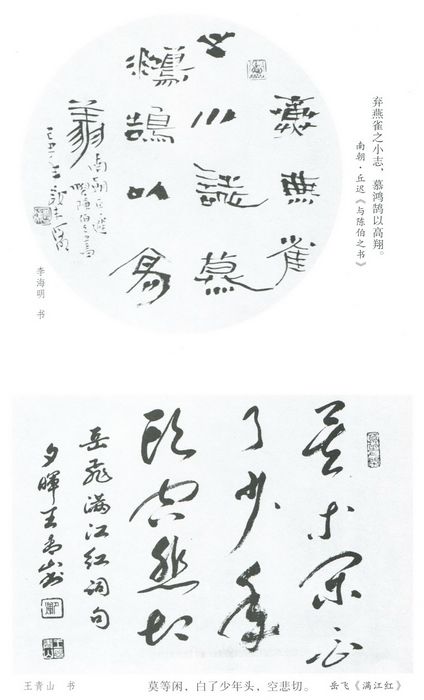 弃燕雀之小志，慕鸿鹄以高翔。
南朝·丘迟《与陈伯之书》
棄燕雀
之小誌慕
鴻鵠以高
翔
南朝丘遲
與陳伯之書
李海明 书
莫等闲白
了少年
头空悲切
岳飛满江红词句
夕暉王青山書
王青山 书
莫等闲，白了少年头，空悲切。 岳飞《满江红》